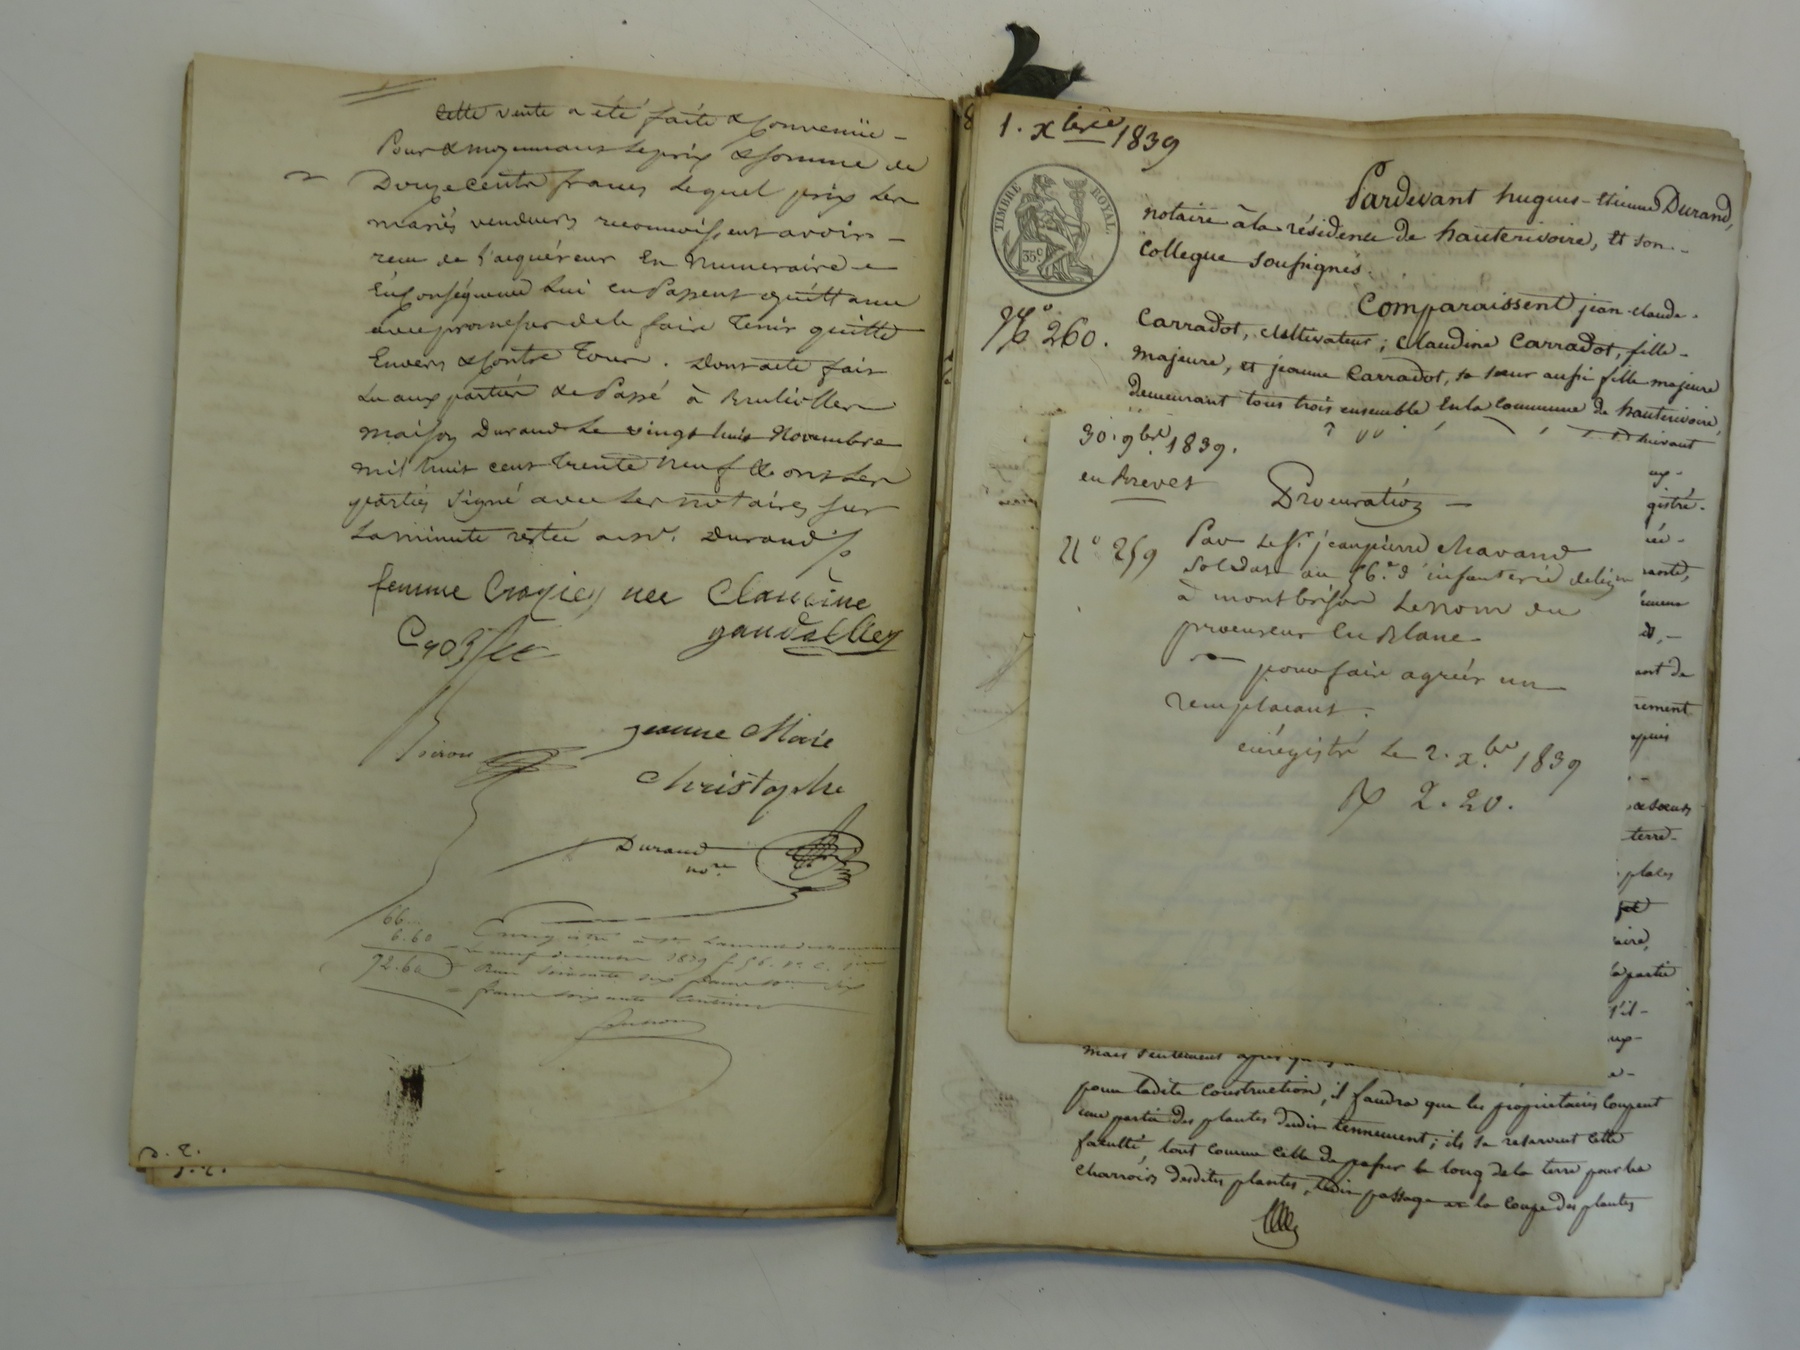 Cette vente a été faite & Convenüe -
Pour & moyennant le prix & somme de
Douze cents francs lequel prix les
mariés vendeurs reconnoissent avoir -
recu de l'acquéreur En Numeraire
En Conséquence lui en Passent quittance
avec promesse de le faire tenir quitte
Envers & Contre Tous. Dont acte fait
Lu aux parties & Passé à Brullioles
maison Durand Le vingt huit Novembre
mil huit cent trente neuf & ont les
parties signé avec les notaires sur
La minute restée a Me. Durand
femme née Claudine
jeanne Marie
Christophe
Durand
nore
66
6.60
72.60
Enregistré à St Laurent
Le neuf décembre 1839 f 56. vo. c.
Reçu soixante six francs dix
francs soixante centimes
1. xbre 1839
TIMBRE ROYAL
35c
Pardevant hugues-Etienne Durand,
notaire à la résidence de hauterivoire, et son -
Collegue soussignés.
Comparaissent jean-claude -
No 260.
Carradot, cultivateur; Claudine Carradot, fille -
majeure, et jeanne Carradot, sa sœur aussi fille majeure
demeurant tous trois ensemble En la Commune de hauterivoire,
30. 9bre 1839.
en Brevet
Procuration -
No 259
Par le Sr. jean pierre Chavand
Soldat au 56.e d'infanterie de ligne
à montbrison Le nom du
procureur En Blanc
pour faire agréer un
remplacant.
enregistré Le 2. xbre 1839
2.20.
suivant
gistré -
ement
ant de
rement
depuis
sœurs
terre -
places
la partie
s'il -
mais seulement après
pour ladite Construction, il faudra que les propriétaires Coupent
une partie des plantes dudit tennement; ils se reservent cette
faculté, tout comme Celle de passer le long de la terre pour les
Charrois desdites plantes, ledit passage et la Coupe des plantes